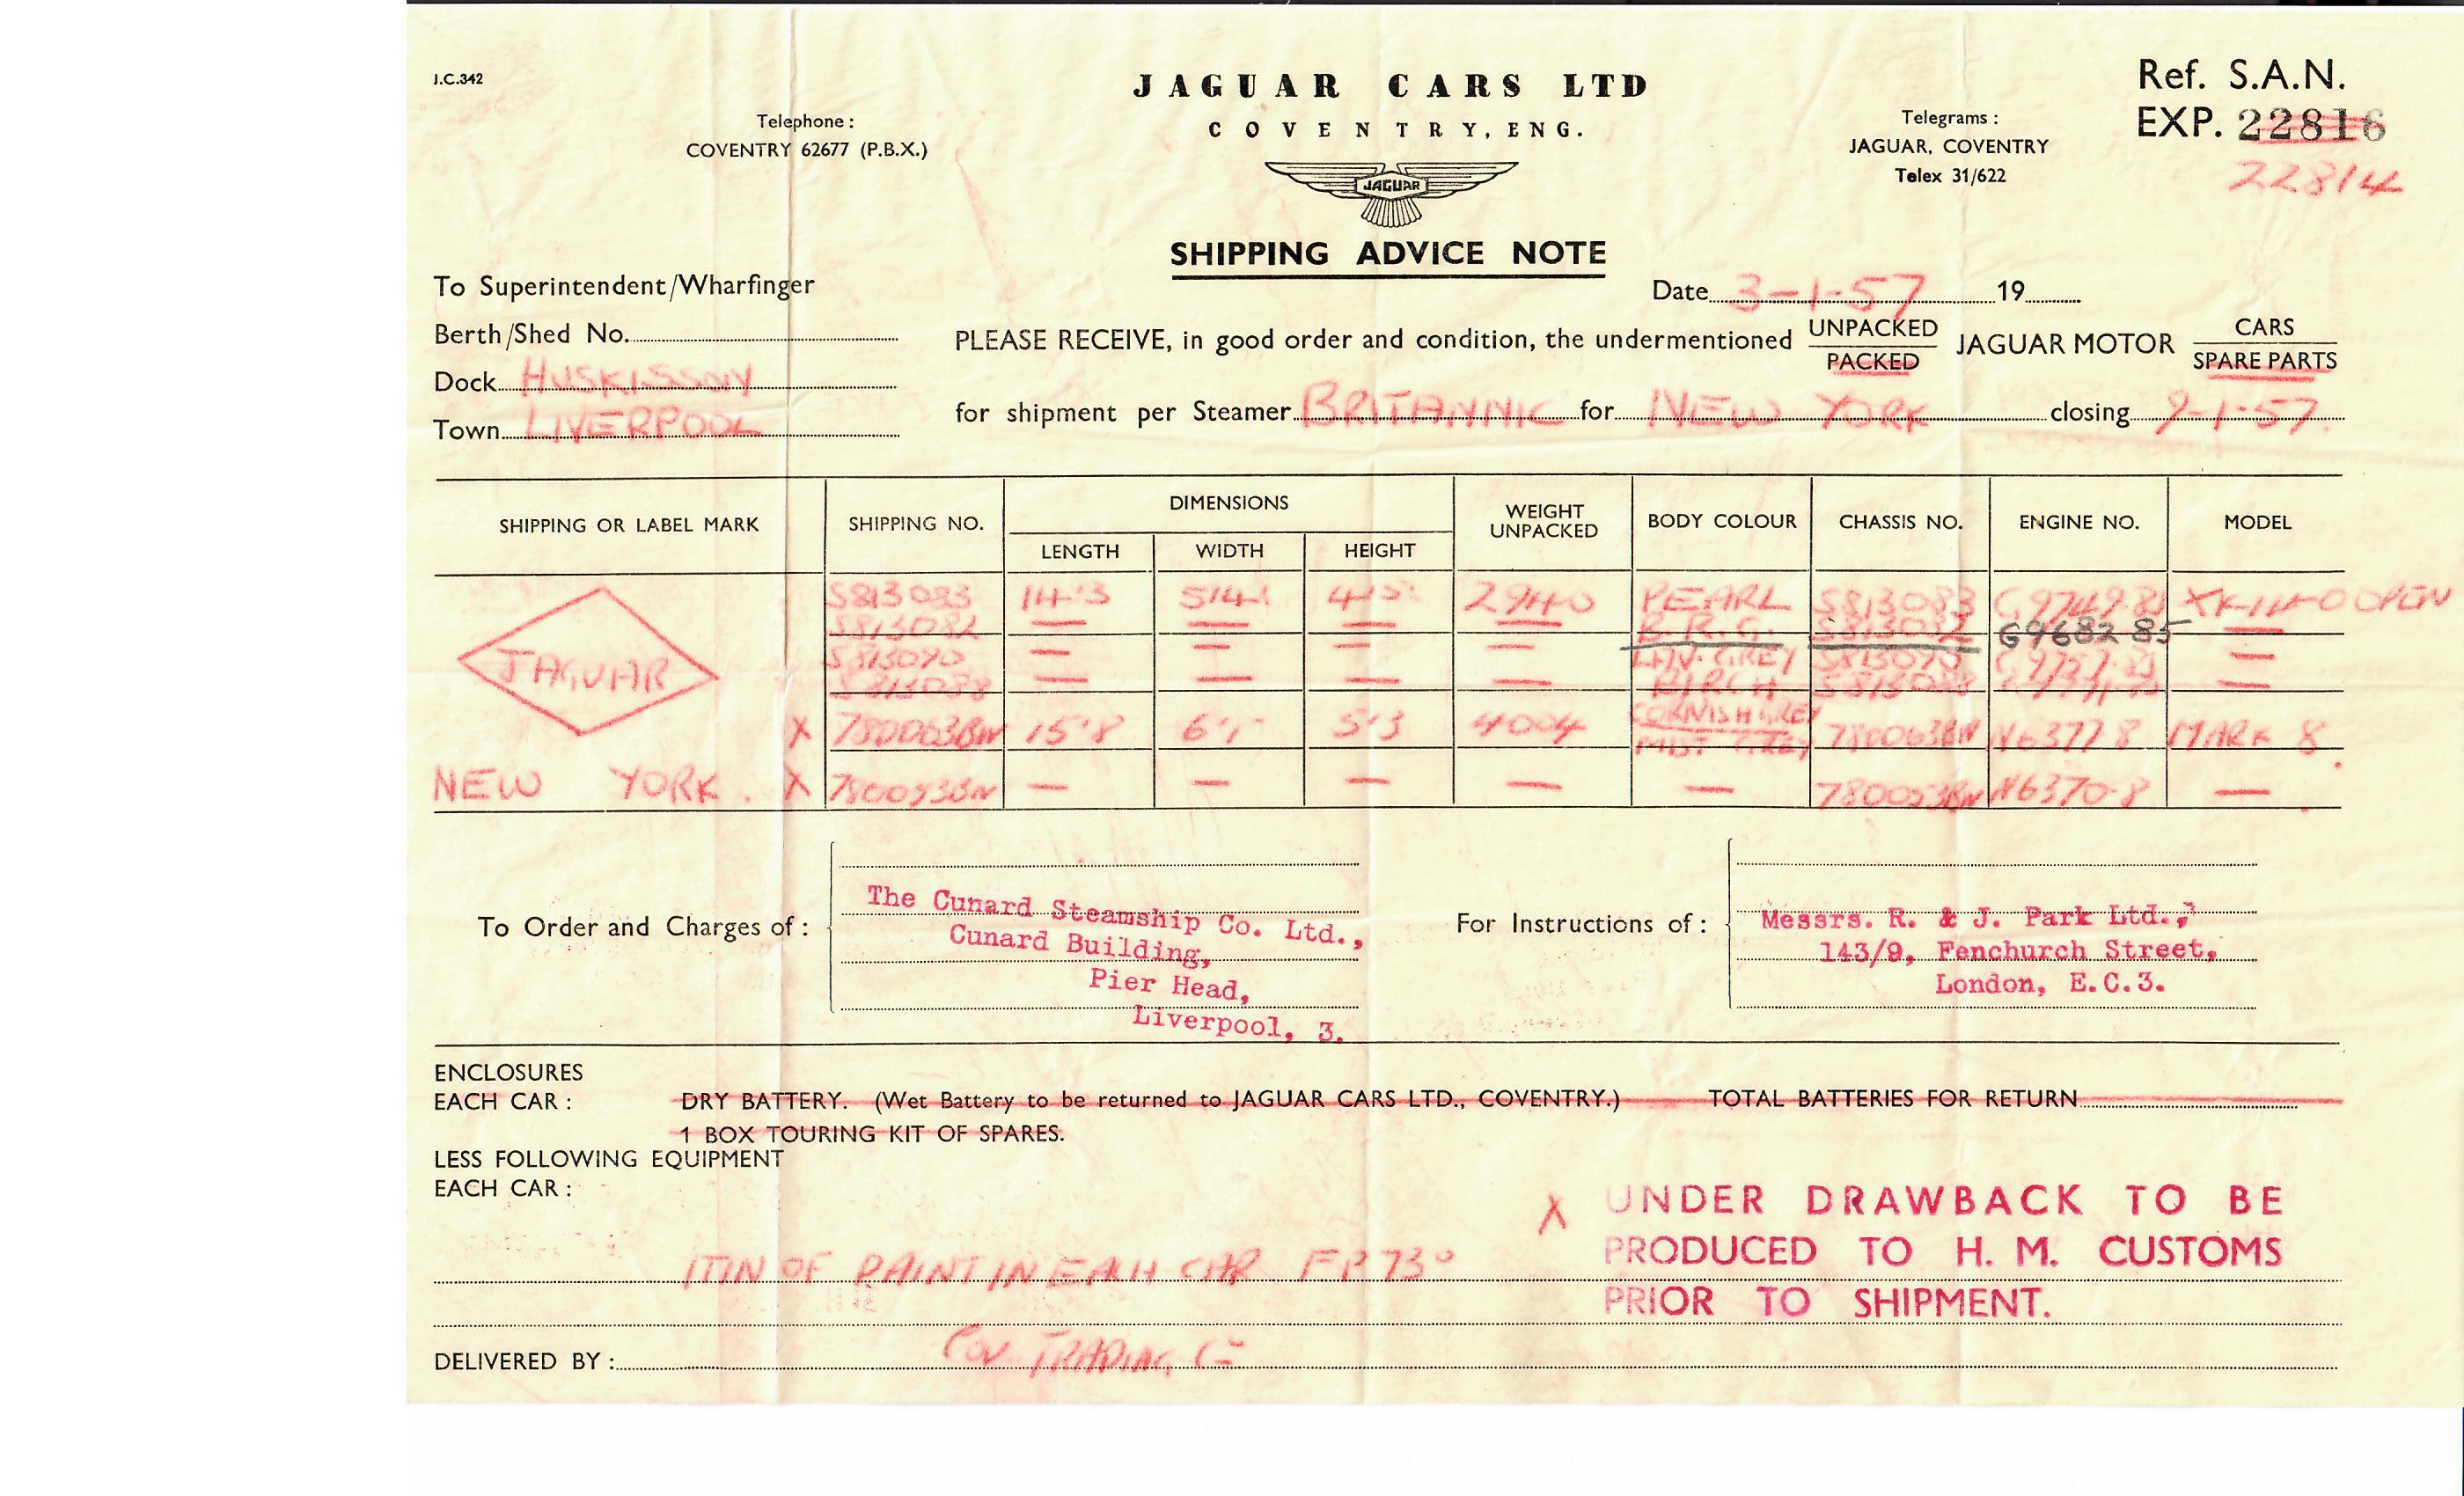 J.C.342
JAGUAR CARS LTD
COVENTRY, ENG.
Telephone :
COVENTRY 62677 (P.B.X.)
JAGUAR
Telegrams :
JAGUAR, COVENTRY
Telex 31/622
Ref. S.A.N.
EXP. 22816
22814
SHIPPING ADVICE NOTE
To Superintendent/Wharfinger
Date 3-1-57 19
Berth/Shed No.
PLEASE RECEIVE, in good order and condition, the undermentioned UNPACKED PACKED JAGUAR MOTOR CARS SPARE PARTS
Dock HUSKISSON
Town LIVERPOOL
for shipment per Steamer BRITANNIC for NEW YORK closing 9-1-57.
SHIPPING OR LABEL MARK SHIPPING NO. DIMENSIONS WEIGHT UNPACKED BODY COLOUR CHASSIS NO. ENGINE NO. MODEL
LENGTH WIDTH HEIGHT
S813083 14'3 5'4 4'5 2940 PEARL S813083 G9749-8 XK-140 OPEN
S813082 — — — — B.R.G. S813082 G9682 85 —
S813090 — — — — LAV. GREY S813090 —
S813088 — — — — BIRCH S813088 —
JAGUAR
X 780063BW 15'8 6'1 5'3 4004 CORNISH GREY MIST GREY 780063BW N6377 8 MARK 8
NEW YORK. X 780053BW — — — — — 780053BW N6370-8 —
To Order and Charges of :
The Cunard Steamship Co. Ltd.,
Cunard Building,
Pier Head,
Liverpool, 3.
For Instructions of :
Messrs. R. & J. Park Ltd.,
143/9, Fenchurch Street,
London, E.C.3.
ENCLOSURES
EACH CAR : DRY BATTERY. (Wet Battery to be returned to JAGUAR CARS LTD., COVENTRY.) TOTAL BATTERIES FOR RETURN
1 BOX TOURING KIT OF SPARES.
LESS FOLLOWING EQUIPMENT
EACH CAR :
X UNDER DRAWBACK TO BE
PRODUCED TO H. M. CUSTOMS
PRIOR TO SHIPMENT.
1 TIN OF PAINT IN EACH CAR FP 730
DELIVERED BY : COV TRADING Co